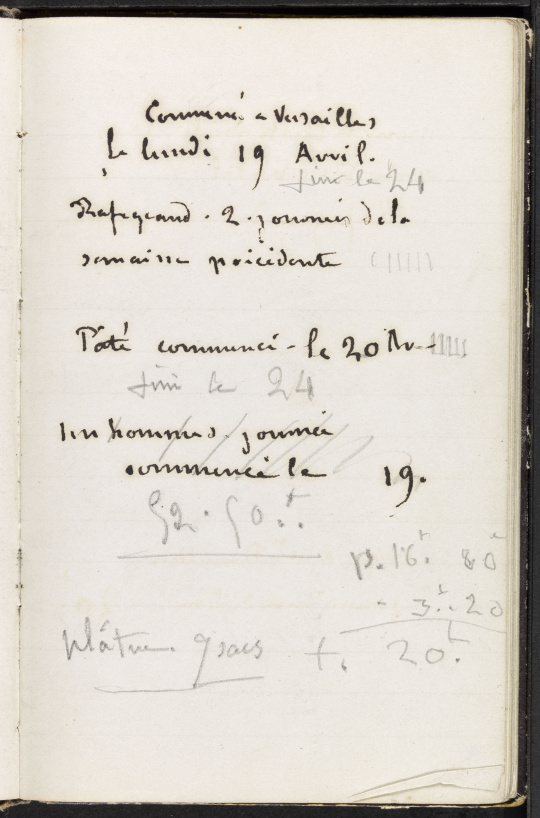 Commencé a Versailles
le lundi 19 Avril.
fini le 24
2 journées de la
semaine précédente
Pâté commencé - le 20 Av
fini le 24
un hommes. journée
commencé le 19.
52. 50.
p. 16. 80
3. 20
plâtre. 7 sacs t. 20.